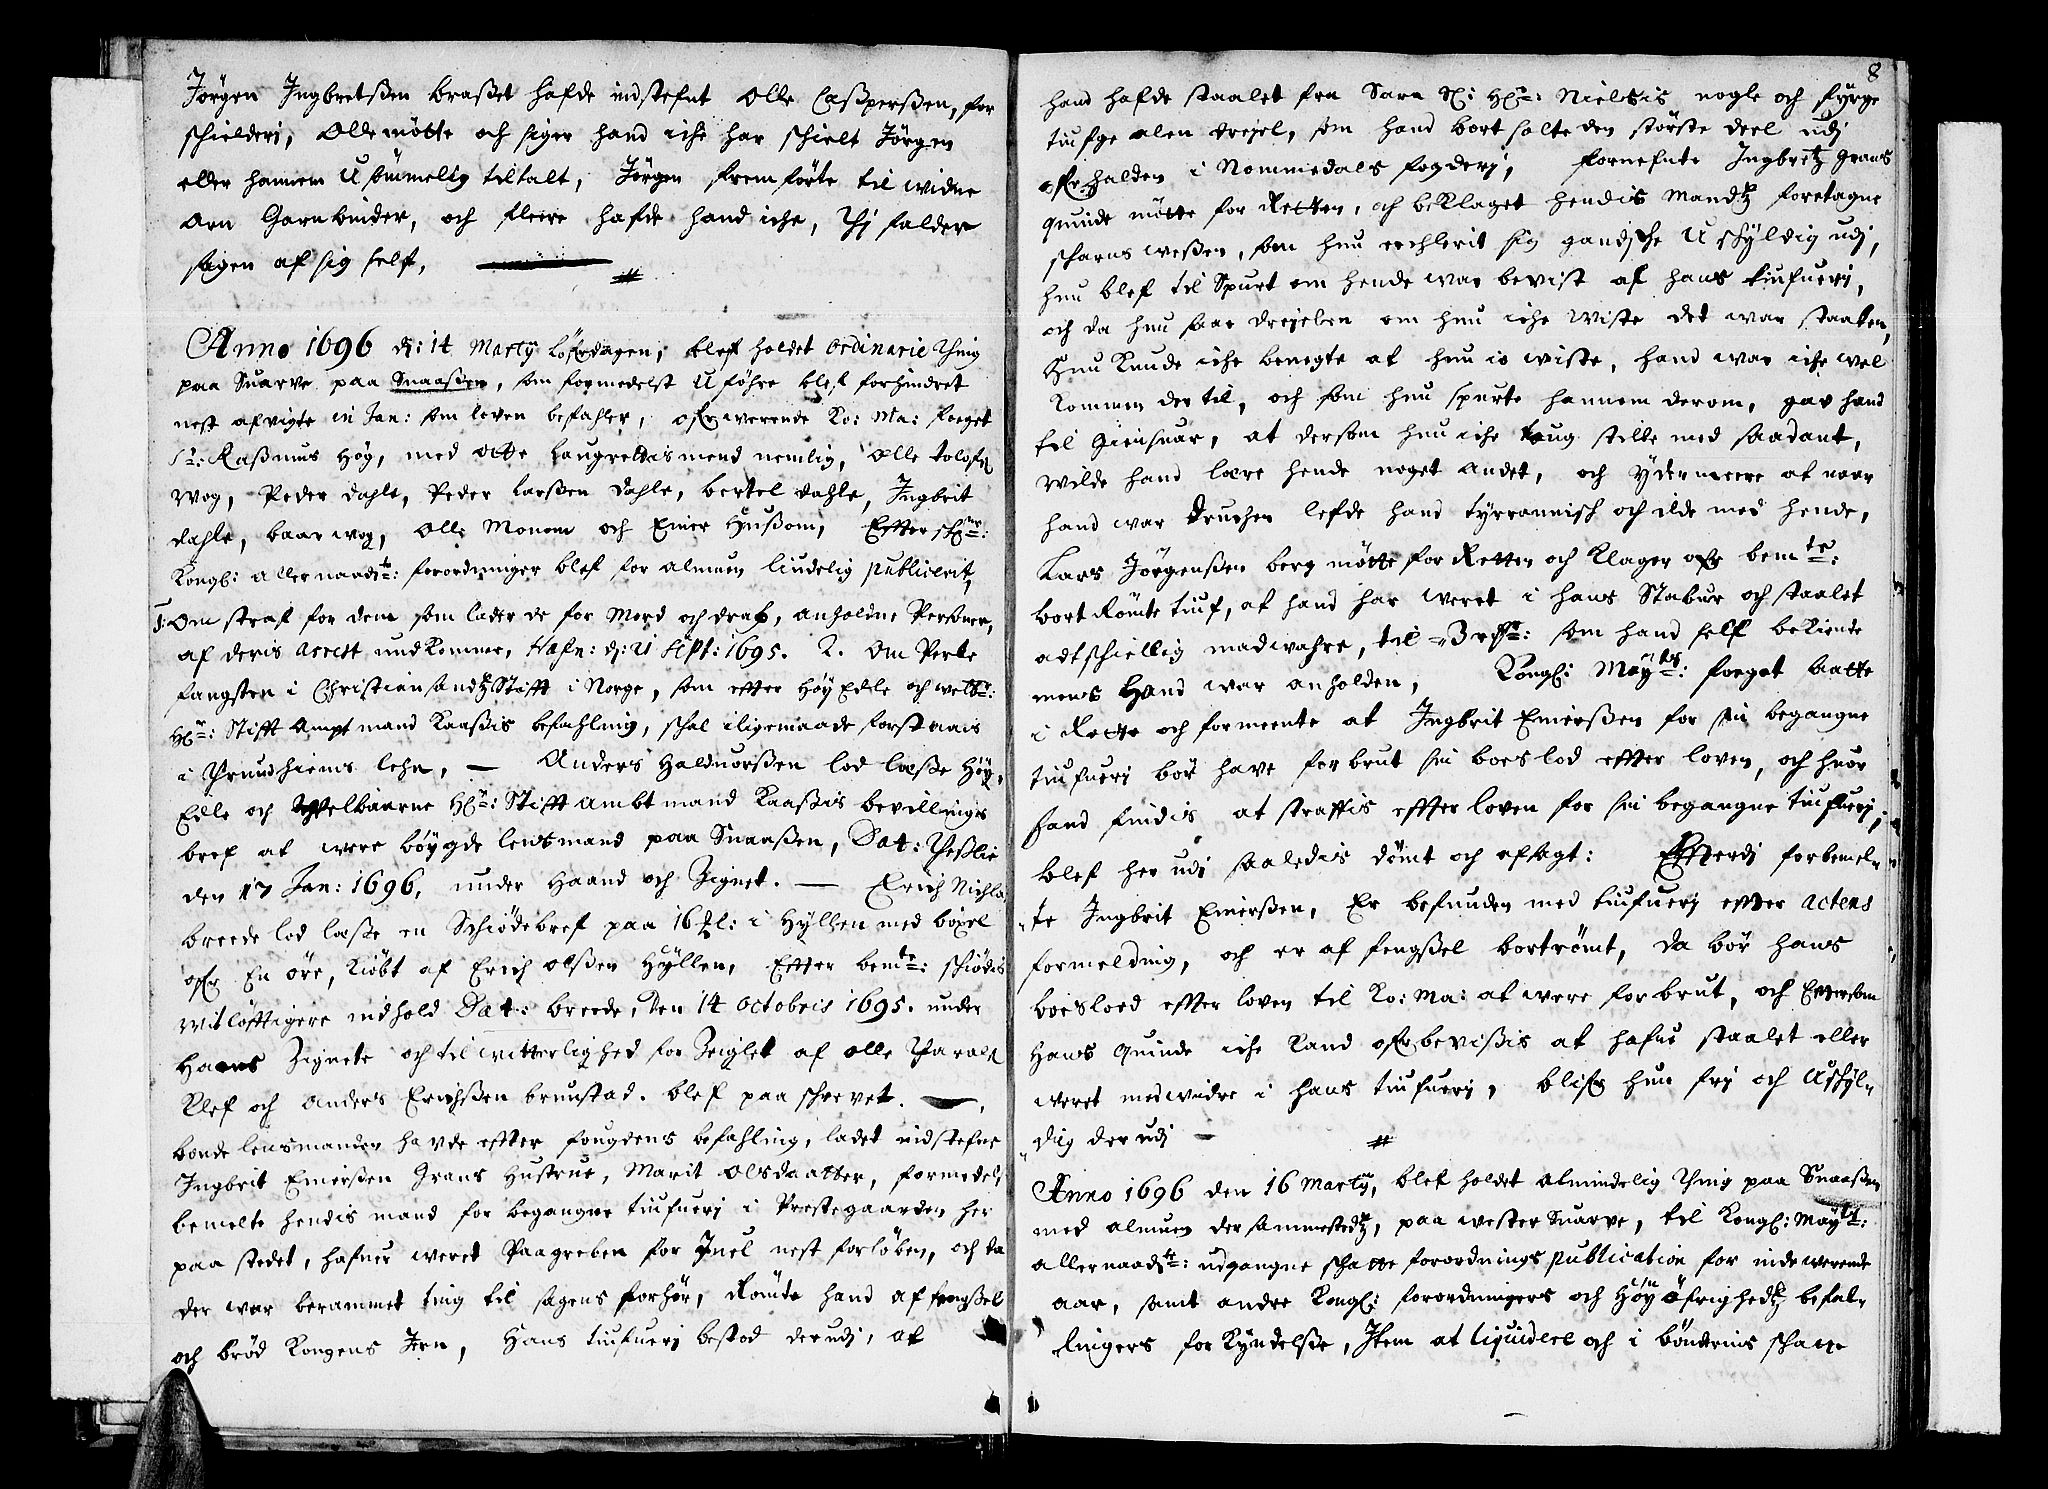 Jörgen Ingbretßen braßet hafde indstefnt Olle Caßperßen, for
schielderj, Olle mötte och siger hand iche har schielt Jörgen
eller hannem Usömmelig tiltalt, Jörgen fremförte til widne
Arn Garnbinder, och fleere hafde hand iche, Thj falder
sagen af sig self,
Anno 1696 dj: 14 Martij Löfverdagen, blef holdet ordinarie Thing
paa Suarve paa Snaaßen, som formedelst Uföhre blef forhindret
nest afvigte in Jan: som loven befahler, ofververende Ko: Ma: foeget
Sr: Raßmus Höy, med otte Laugrettismend nemlig, Olle
Wog, Peder Dahle, Peder Larßen Dahle, bertel Dahle, Ingbrit
Dahle, baar wog, Olle Monem och Einer Hußom, Effter
Kongl: allernaadste: forordninger blef for almuen liudelig publicerit,
1: Om straf for dem som lader de for Mord och drab, anholdne Personer,
af deris Arrest undkomme, Hafn: dj: 21 Sept: 1695. 2. Om Perle
fangsten i Christiansandtz Stifft i Norge, som effter Höy Edle och welb:
Hr: Stifft Amptmand Kaaßis befahling, schal iligemaade forstaais
i Trundhiems lehn, — Anders Halduorßen lod læße Höy
Edle och Welbaarne Hr: Stifft ambtmand Kaaßis bevillings
bref at were böygde lensmand paa Snaaßen, Dat:
den 17 Jan: 1696, under Haand och Zignet. — Erich
breede lod læße en Schiödebref paa 16 i Hyllen med böxel
ofver En öre, kiöbt af Erich olßen Hyllen, Effter bemte: schiödis
witlöfftigere indhold Dat: breede, Den 14 Octobris 1695. under
Hans Zignete och til witterlighed for Zeiglet af olle
Klef och Anders Erichßen brunstad. blef paa schrevet. —
bonde lensmanden havde effter fougdens befahling, ladet indstefne
Ingbrit Einerßen Grans Hustrue, Marit Olsdaatter, formedelst
bemelte hendis mand for begangne tiufuerj i Prestegaarden her
paa stedet, hafuer weret Paagreben for Juel nest forlöben, och da
der war berammet ting til sagens forhör, Römte hand af fengßel
och bröd Kongens Jern, Hans tiufuerj bestod derudj, at
8
hand hafde staalet fra Sara Sl: Hr: Nielsis nogle och fyrge
tiufge alen dreyel, som hand bort solte den störste deel udj
ofverhalden i Nommedals fogderj, fornefnte Ingbretz Grans
quinde mötte for Retten, och beklaget hendis Mandtz foretagne
scharns weßen, som hun erchlerit sig gandsche Uschyldig udj,
hun blef til Spurt om hende war bevist af hans tiufuerj,
och da hun saae dreyelen om hun iche wiste det war staalen,
Hun kunde iche benegte at hun io wiste, hand war iche wel
kommen der til, och som hun spurte hannem derom, gav hand
til Giensuar, at dersom hun iche taug stille med saadant,
wilde hand lære hende noget andet, och ydermeere at naar
hand war druchen lefde hand tyrrannisch och ilde med hende,
Lars Jörgenßen berg mötte for Retten och klager ofver bemte:
bort Römte tiuf, at hand har weret i hans Stabur och staalet
adtschiellig madwahre, til 3 rdr: som hand self bekiente
mens Hand war anholden, Kongl: Maytz: foeget satte
i Rette och formeente at Ingbrit Einerßen for sin begangne
tiufuerj bör have forbrut sin boeslod effter loven, och huor
hand findis at straffis effter loven for sin begangne tiufuerj,
blef her udj saaledis dömt och afsagt: Effterdj forbemel-
te Ingbrit Einerßen, Er befunden med tiufuerj effter actens
formelding, och er af fengßel bortrömt, da bör hans
boeslod effter loven til Ko: Ma: at were forbrut, och Effterßom
Hans quinde iche kand ofverbevißis at hafue staalet eller
weret medwidre i hans tiufuerj, blifver hun frj och Uschyl-
dig der udj —
Anno 1696 den 16 Martij, blef holdet almindelig Thing paa Snaaßen
med almuen dersammestedtz, paa wester Suarve, til Kongl: Maytz:
allernaadste: udgangne schatte forordnings publication for inde werende
aar, samt andre Kongl: forordningers och Höy öfrighedtz befal-
lingers forkyndelße, Item at liquidere och i böndernis schatte